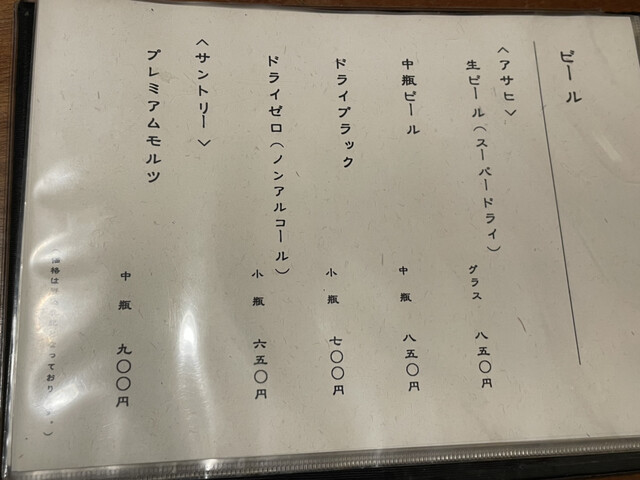 ビール
〈アサヒ〉
生ビール(スーパードライ) グラス 八五〇円
中瓶ビール 中瓶 八五〇円
ドライブラック 小瓶 七〇〇円
ドライゼロ(ノンアルコール) 小瓶 六五〇円
〈サントリー〉
プレミアムモルツ 中瓶 九〇〇円
(価格は なっており 。)